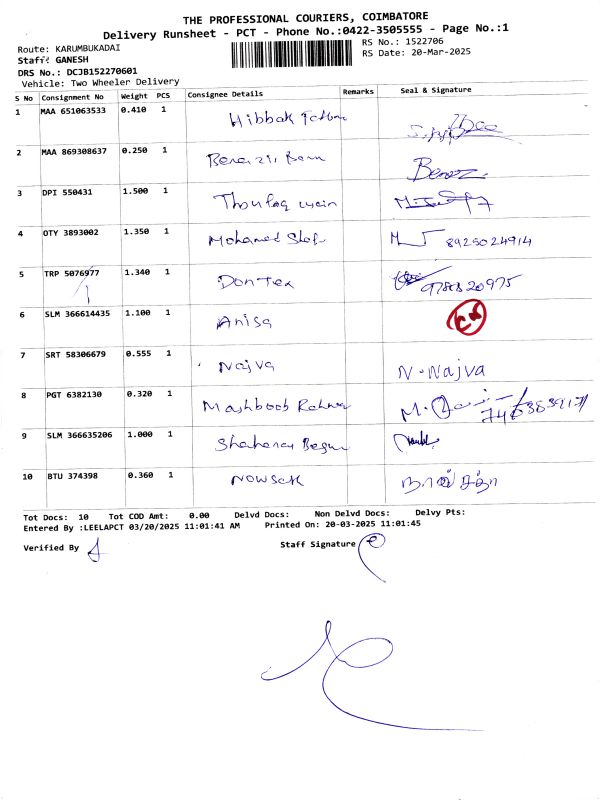 THE PROFESSIONAL COURIERS, COIMBATORE
Delivery Runsheet - PCT - Phone No.:0422-3505555 - Page No.:1
Route: KARUMBUKADAI
RS No.: 1522706
Staff: GANESH
RS Date: 20-Mar-2025
DRS No.: DCJB152270601
Vehicle: Two Wheeler Delivery
S No Consignment No Weight PCS Consignee Details Remarks Seal & Signature
1 MAA 651063533 0.410 1 Hibbak
2 MAA 869308637 0.250 1
Benaz
3 DPI 550431 1.500 1
4 OTY 3893002 1.350 1 Mohamed 8925024914
5 TRP 5076977 1.340 1 Dontex
6 SLM 366614435 1.100 1 Anisa
7 SRT 58306679 0.555 1 Najva N. Najva
8 PGT 6382130 0.320 1 Mashboob
9 SLM 366635206 1.000 1 Begum
10 BTU 374398 0.360 1
Tot Docs: 10 Tot COD Amt: 0.00 Delvd Docs: Non Delvd Docs: Delvy Pts:
Entered By :LEELAPCT 03/20/2025 11:01:41 AM Printed On: 20-03-2025 11:01:45
Verified By
Staff Signature